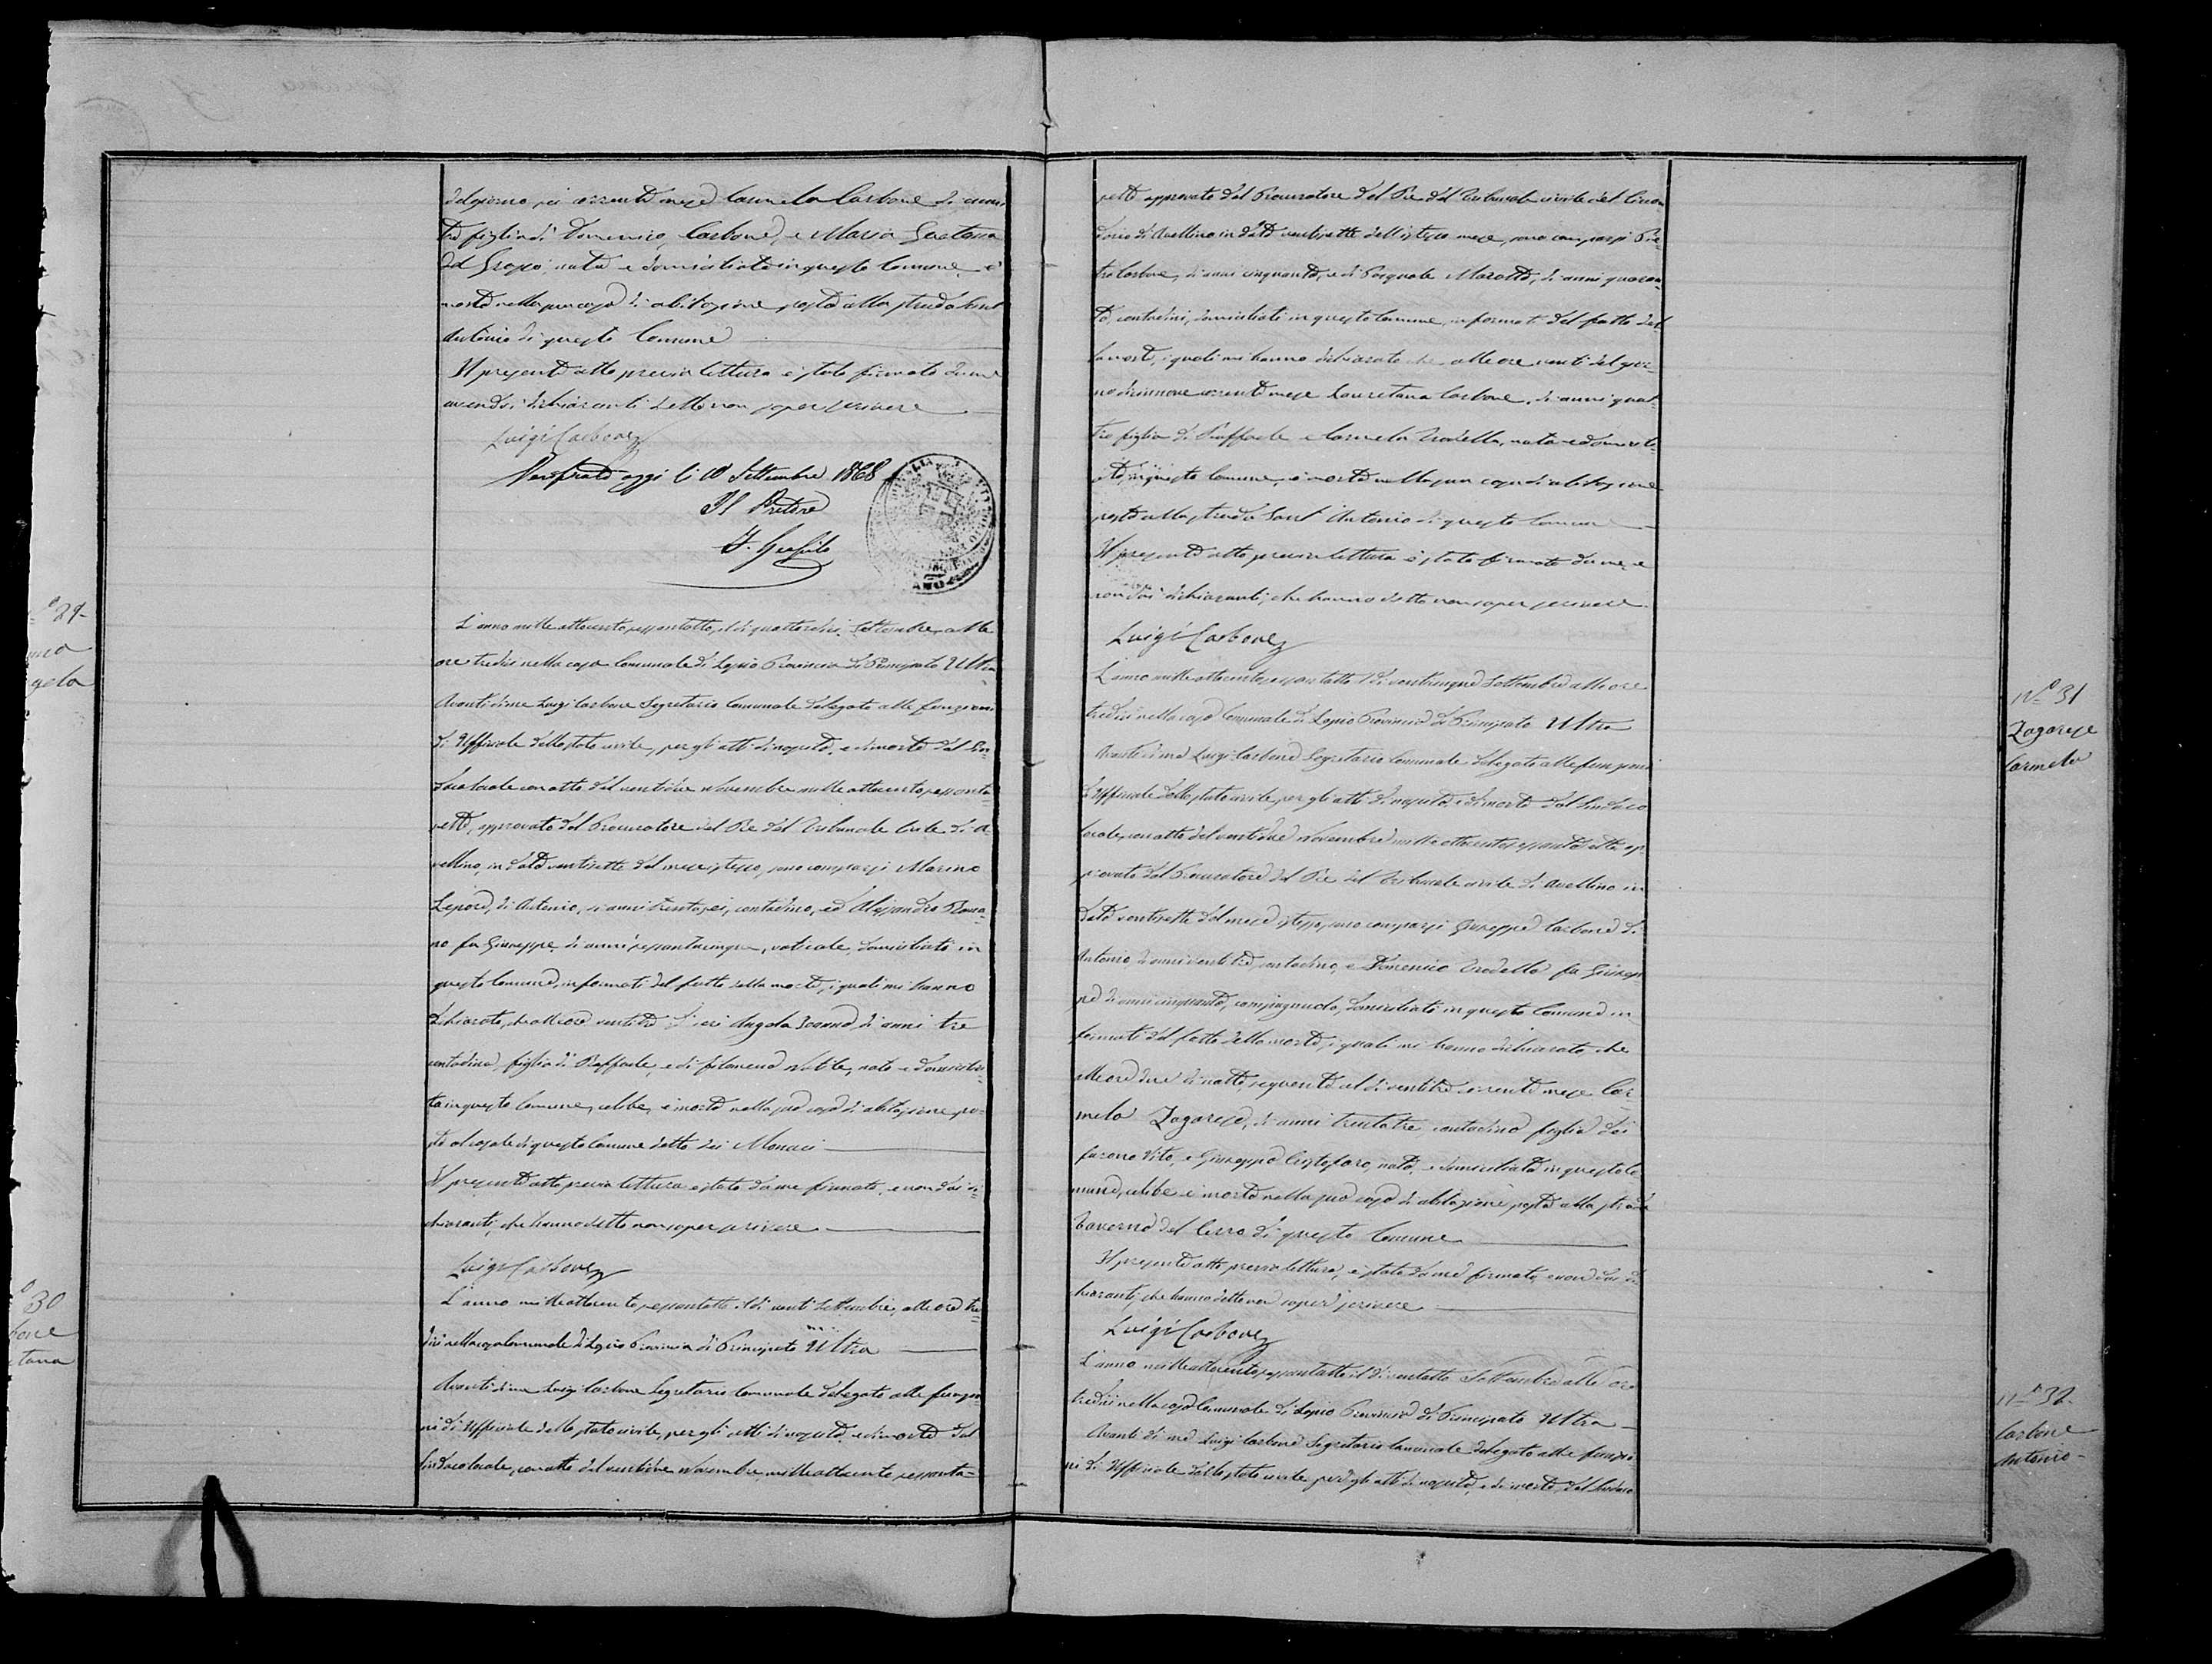 del giorno sei corrente mese Carmela Carbone di anni
tre figlia di Domenico Carbone, e Maria Gaetana
Del Grosso, nata e domiciliata in questo Comune, è
morta nella sua casa di abitazione, posta alla strada Sant
Antonio di questo Comune
Il presente atto previa lettura è stato firmato da me
avendo i dichiaranti detto non saper scrivere
Luigi Carbone
Verificato oggi li 10 Settembre 1868
Il Pretore
N.º 29
gela
L'anno mille ottocento sessantotto, il dì quattordici Settembre, alle
ore tredici nella casa Comunale di Lapio Provincia di Principato Ultra
Avanti di me Luigi Carbone Segretario Comunale delegato alle funzioni
di Uffiziale dello stato civile, per gli atti di nascita, e di morte dal Sin-
daco locale con atto del ventidue Novembre mille ottocento sessanta-
sette, approvato dal Procuratore del Re del Tribunale Civile di A-
vellino, in data ventisette del mese istesso, sono comparsi Marino
Lepore, di Antonio, di anni trentasei, contadino, ed Alessandro Roma-
no fu Giuseppe di anni sessantacinque, vaticale, domiciliati in
questo Comune, informati del fatto della morte, i quali mi hanno
dichiarato, che alle ore ventitre di ieri Angela Ioanna di anni tre
contadina, figlia di Raffaele, e di Filomena Nobile, nata e domicilia-
ta in questo Comune, celibe, è morta nella sua casa di abitazione po-
sta al casale di questo Comune detto dei Monaci
Il presente atto previa lettura è stato da me firmato, e non dai di-
chiaranti, che hanno detto non saper scrivere
Luigi Carbone
30
bone
tana
L'anno mille ottocento sessantotto il dì venti Settembre, alle ore tre-
dici nella casa Comunale di Lapio Provincia di Principato Ultra
Avanti di me Luigi Carbone Segretario Comunale delegato alle funzio-
ni di Uffiziale dello stato civile, per gli atti di nascita, e di morte dal
Sindaco locale, con atto del ventidue Novembre mille ottocento sessanta-
sette approvato dal Procuratore del Re del Tribunale civile del Circon-
dario di Avellino in data ventisette dell'istesso mese, sono comparsi Pie-
tro Carbone, di anni cinquanta, e di Pasquale Marotta, di anni quaran-
ta, contadini, domiciliati in questo Comune, informati del fatto del-
la morte, i quali mi hanno dichiarato che alle ore venti del gior-
no diciannove corrente mese Lauretana Carbone, di anni quat-
tro figlia di Raffaele e Carmela Tradella, nata e domicilia-
ta in questo Comune, è morta nella sua casa di abitazione
posta alla strada Sant'Antonio di questo Comune
Il presente atto previa lettura è stato firmato da me, e
non dai dichiaranti, che hanno detto non saper scrivere.
Luigi Carbone
N.º 31
Zagarese
Carmela
L'anno mille ottocento sessantotto il dì venticinque Settembre alle ore
tredici nella casa Comunale di Lapio Provincia di Principato Ultra
Avanti di me Luigi Carbone Segretario Comunale delegato alle funzioni
di Uffiziale dello stato civile, per gli atti di nascita, e di morte dal Sindaco
locale, con atto del ventidue Novembre mille ottocento sessantasette ap-
provato dal Procuratore del Re del Tribunale civile di Avellino in
data ventisette del mese istesso, sono comparsi Giuseppe Carbone di
Antonio, di anni ventitre, contadino, e Domenico Tradella fu Giusep-
pe di anni cinquanta, campagnuolo, domiciliati in questo Comune in-
formati del fatto della morte, i quali mi hanno dichiarato che
alle ore due di notte seguente al dì ventitre corrente mese Car-
mela Zagarese, di anni trentatre contadina figlia dei
furono Vito, e Giuseppa Cristofaro, nata, e domiciliata in questo Co-
mune, celibe è morta nella sua casa di abitazione posta alla strada
Taverna del Cerro di questo Comune
Il presente atto previa lettura, è stato da me firmato, e non dai di-
chiaranti, che hanno detto non saper scrivere
Luigi Carbone
N.º 32
Carbone
Antonio
L'anno mille ottocento sessantotto, il dì ventotto Settembre alle ore
tredici nella casa Comunale di Lapio Provincia di Principato Ultra
Avanti di me Luigi Carbone Segretario Comunale delegato alle funzio-
ni di Uffiziale dello stato civile per gli atti di nascita, e di morte, dal Sindaco